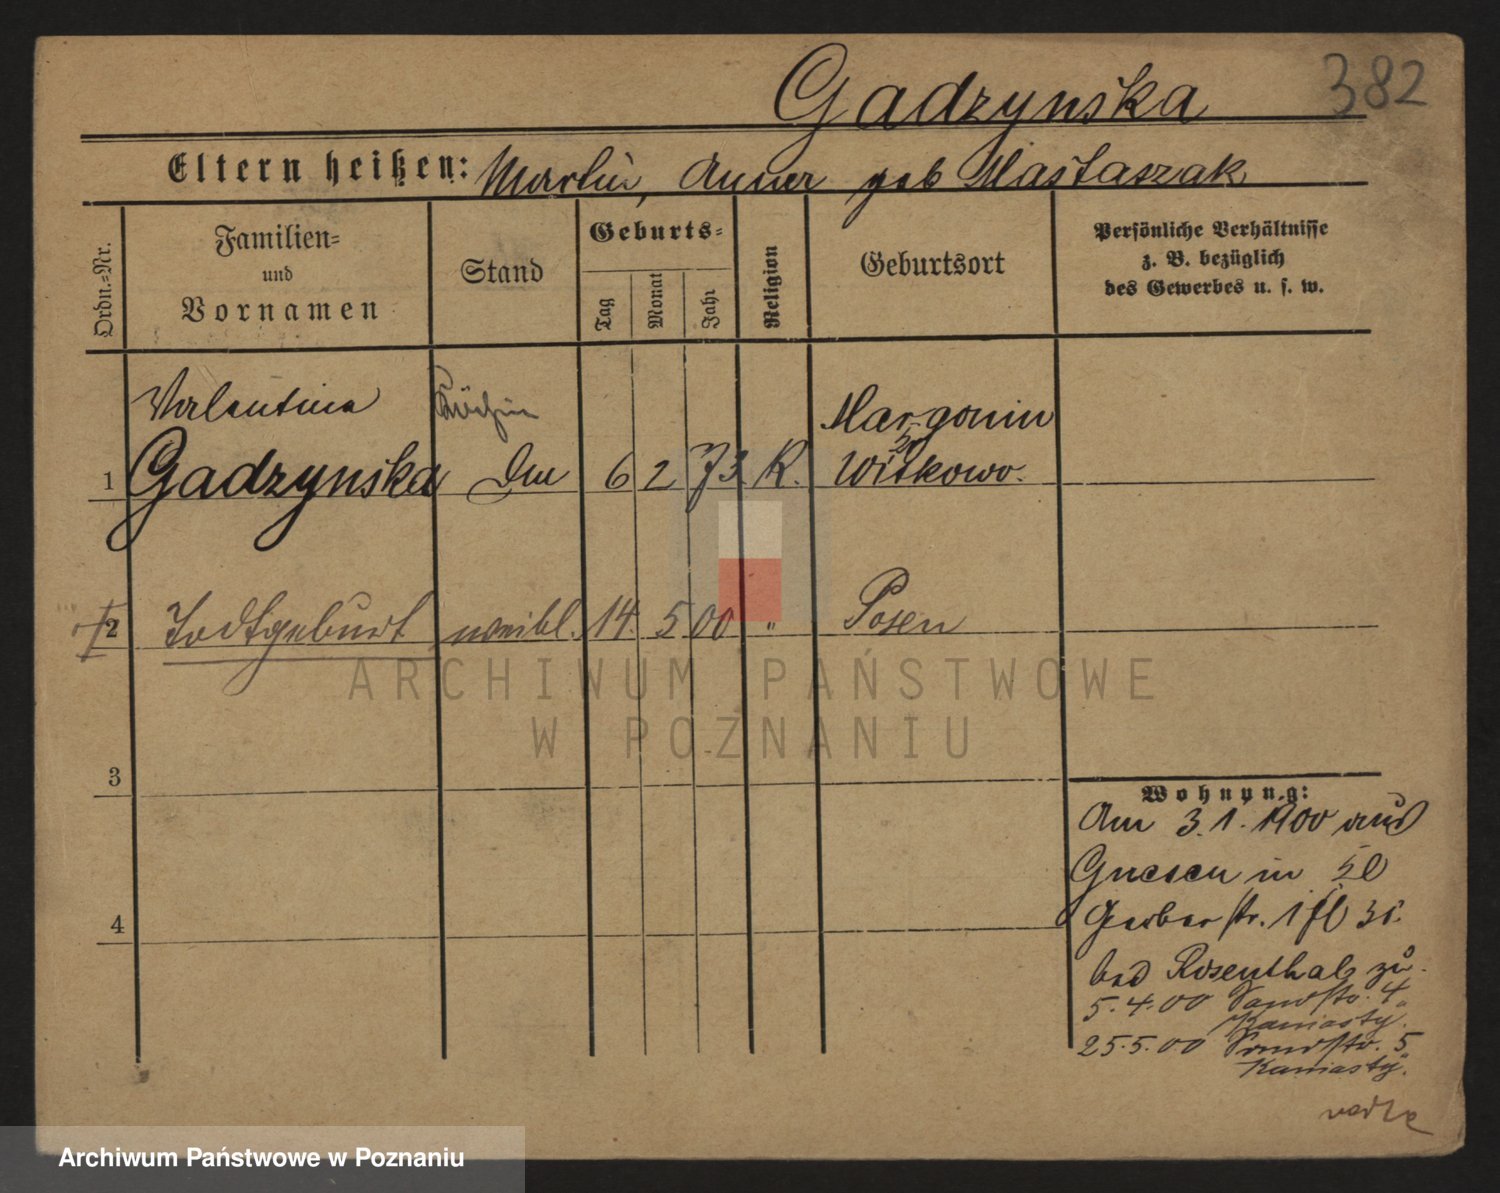 Gadzynska
382
Eltern heißen: Martin, Anna geb Mastaszak
Ordn.=Nr.
Familien=
und
Vornamen
Stand
Geburts=
Tag
Monat
Jahr
Religion
Geburtsort
Persönliche Verhältnisse
z. B. bezüglich
des Gewerbes u. s. w.
Valentina Köchin Margonin
1 Gadzynska 6 2 73 K. Witkowo.
2 Todtgeburt weibl. 14 5 00 " Posen
3
4
Wohnung:
Am 3.1.1900 aus
Gnesen in
Gerberstr. 1
bei Rosenthal zu.
5.4.00 Sandstr. 4
Kaniasty.
25.5.00 Sandstr. 5
Kaniasty.
ARCHIWUM PAŃSTWOWE
W POZNANIU
Archiwum Państwowe w Poznaniu